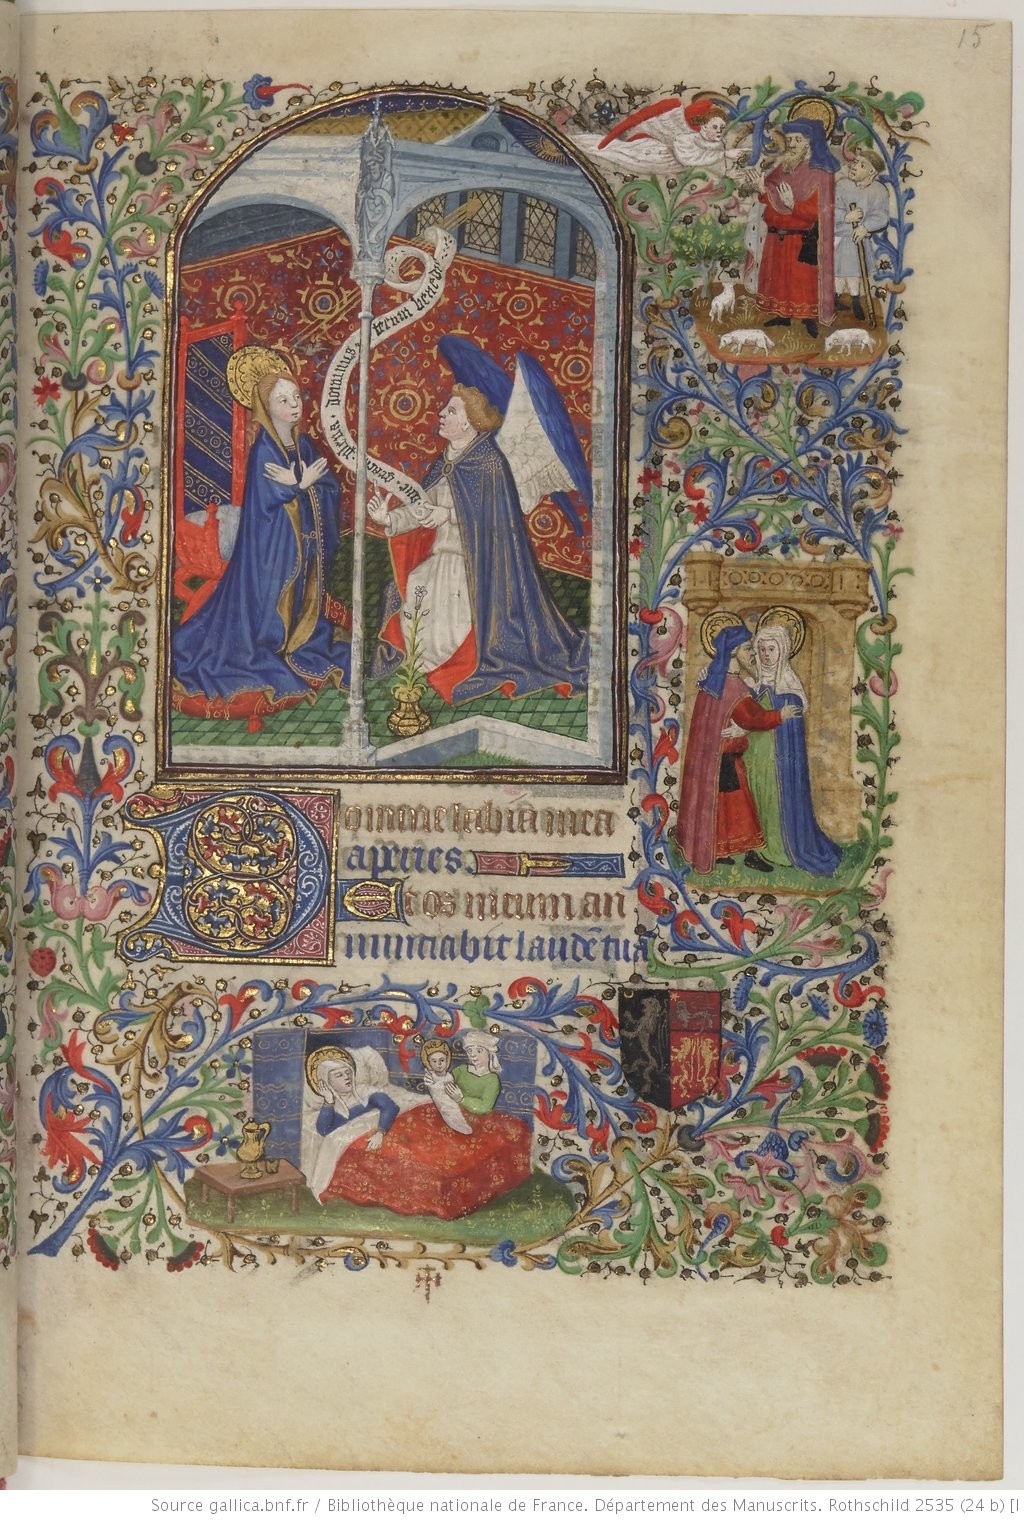 15
aue · gracia · plena · dominus · tecum benedi
Domine labia mea
aperies.
Et os meum an
nunciabit laudē tuā
Source gallica.bnf.fr / Bibliothèque nationale de France. Département des Manuscrits. Rothschild 2535 (24 b) [I